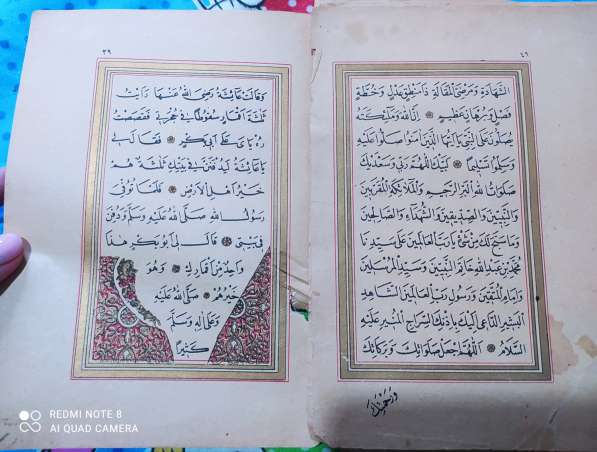 ٤٦
الشَّهَادَةِ وَمَرْضِىَّ الْمَقَالَةِ ذَا مَنْطِقٍ عَدْلٍ وَخُطَّةٍ
فَصْلٍ وَبُرْهَانٍ عَظِيمٍ إِنَّ اللهَ وَمَلٰئِكَتَهُ
يُصَلُّونَ عَلَى النَّبِىِّ يَا أَيُّهَا الَّذِينَ اٰمَنُوا صَلُّوا عَلَيْهِ
وَسَلِّمُوا تَسْلِيمًا لَبَّيْكَ اللّٰهُمَّ رَبِّى وَسَعْدَيْكَ
صَلَوَاتُ اللهِ الْبَرِّ الرَّحِيمِ وَالْمَلٰئِكَةِ الْمُقَرَّبِينَ
وَالنَّبِيِّينَ وَالصِّدِّيقِينَ وَالشُّهَدَاءِ وَالصَّالِحِينَ
وَمَا سَبَّحَ لَكَ مِنْ شَىْءٍ يَا رَبَّ الْعَالَمِينَ عَلَى سَيِّدِنَا
مُحَمَّدِ بْنِ عَبْدِ اللهِ خَاتَمِ النَّبِيِّينَ وَسَيِّدِ الْمُرْسَلِينَ
وَإِمَامِ الْمُتَّقِينَ وَرَسُولِ رَبِّ الْعَالَمِينَ الشَّاهِدِ
الْبَشِيرِ الدَّاعِى إِلَيْكَ بِإِذْنِكَ السِّرَاجِ الْمُنِيرِ عَلَيْهِ
السَّلَامُ اللّٰهُمَّ اجْعَلْ صَلَوَاتِكَ وَبَرَكَاتِكَ
وَرَحْمَتَكَ
٣٩
وَقَالَتْ عَائِشَةُ رَضِىَ اللهُ عَنْهَا رَأَيْتُ
ثَلٰثَةَ أَقْمَارٍ سُقُوطًا فِى حُجْرَتِى فَقَصَصْتُ
رُؤْيَاىَ عَلَى أَبِى بَكْرٍ فَقَالَ لِى
يَا عَائِشَةُ لَيُدْفَنَنَّ فِى بَيْتِكِ ثَلٰثَةٌ هُمْ
خَيْرُ أَهْلِ الْأَرْضِ فَلَمَّا تُوُفِّىَ
رَسُولُ اللهِ صَلَّى اللهُ عَلَيْهِ وَسَلَّمَ وَدُفِنَ
فِى بَيْتِى قَالَ لِى أَبُو بَكْرٍ هٰذَا
وَاحِدٌ مِنْ أَقْمَارِكِ وَهُوَ
خَيْرُهُمْ صَلَّى اللهُ عَلَيْهِ
وَعَلَى اٰلِهِ وَسَلَّمَ
كَثِيرًا
REDMI NOTE 8
AI QUAD CAMERA